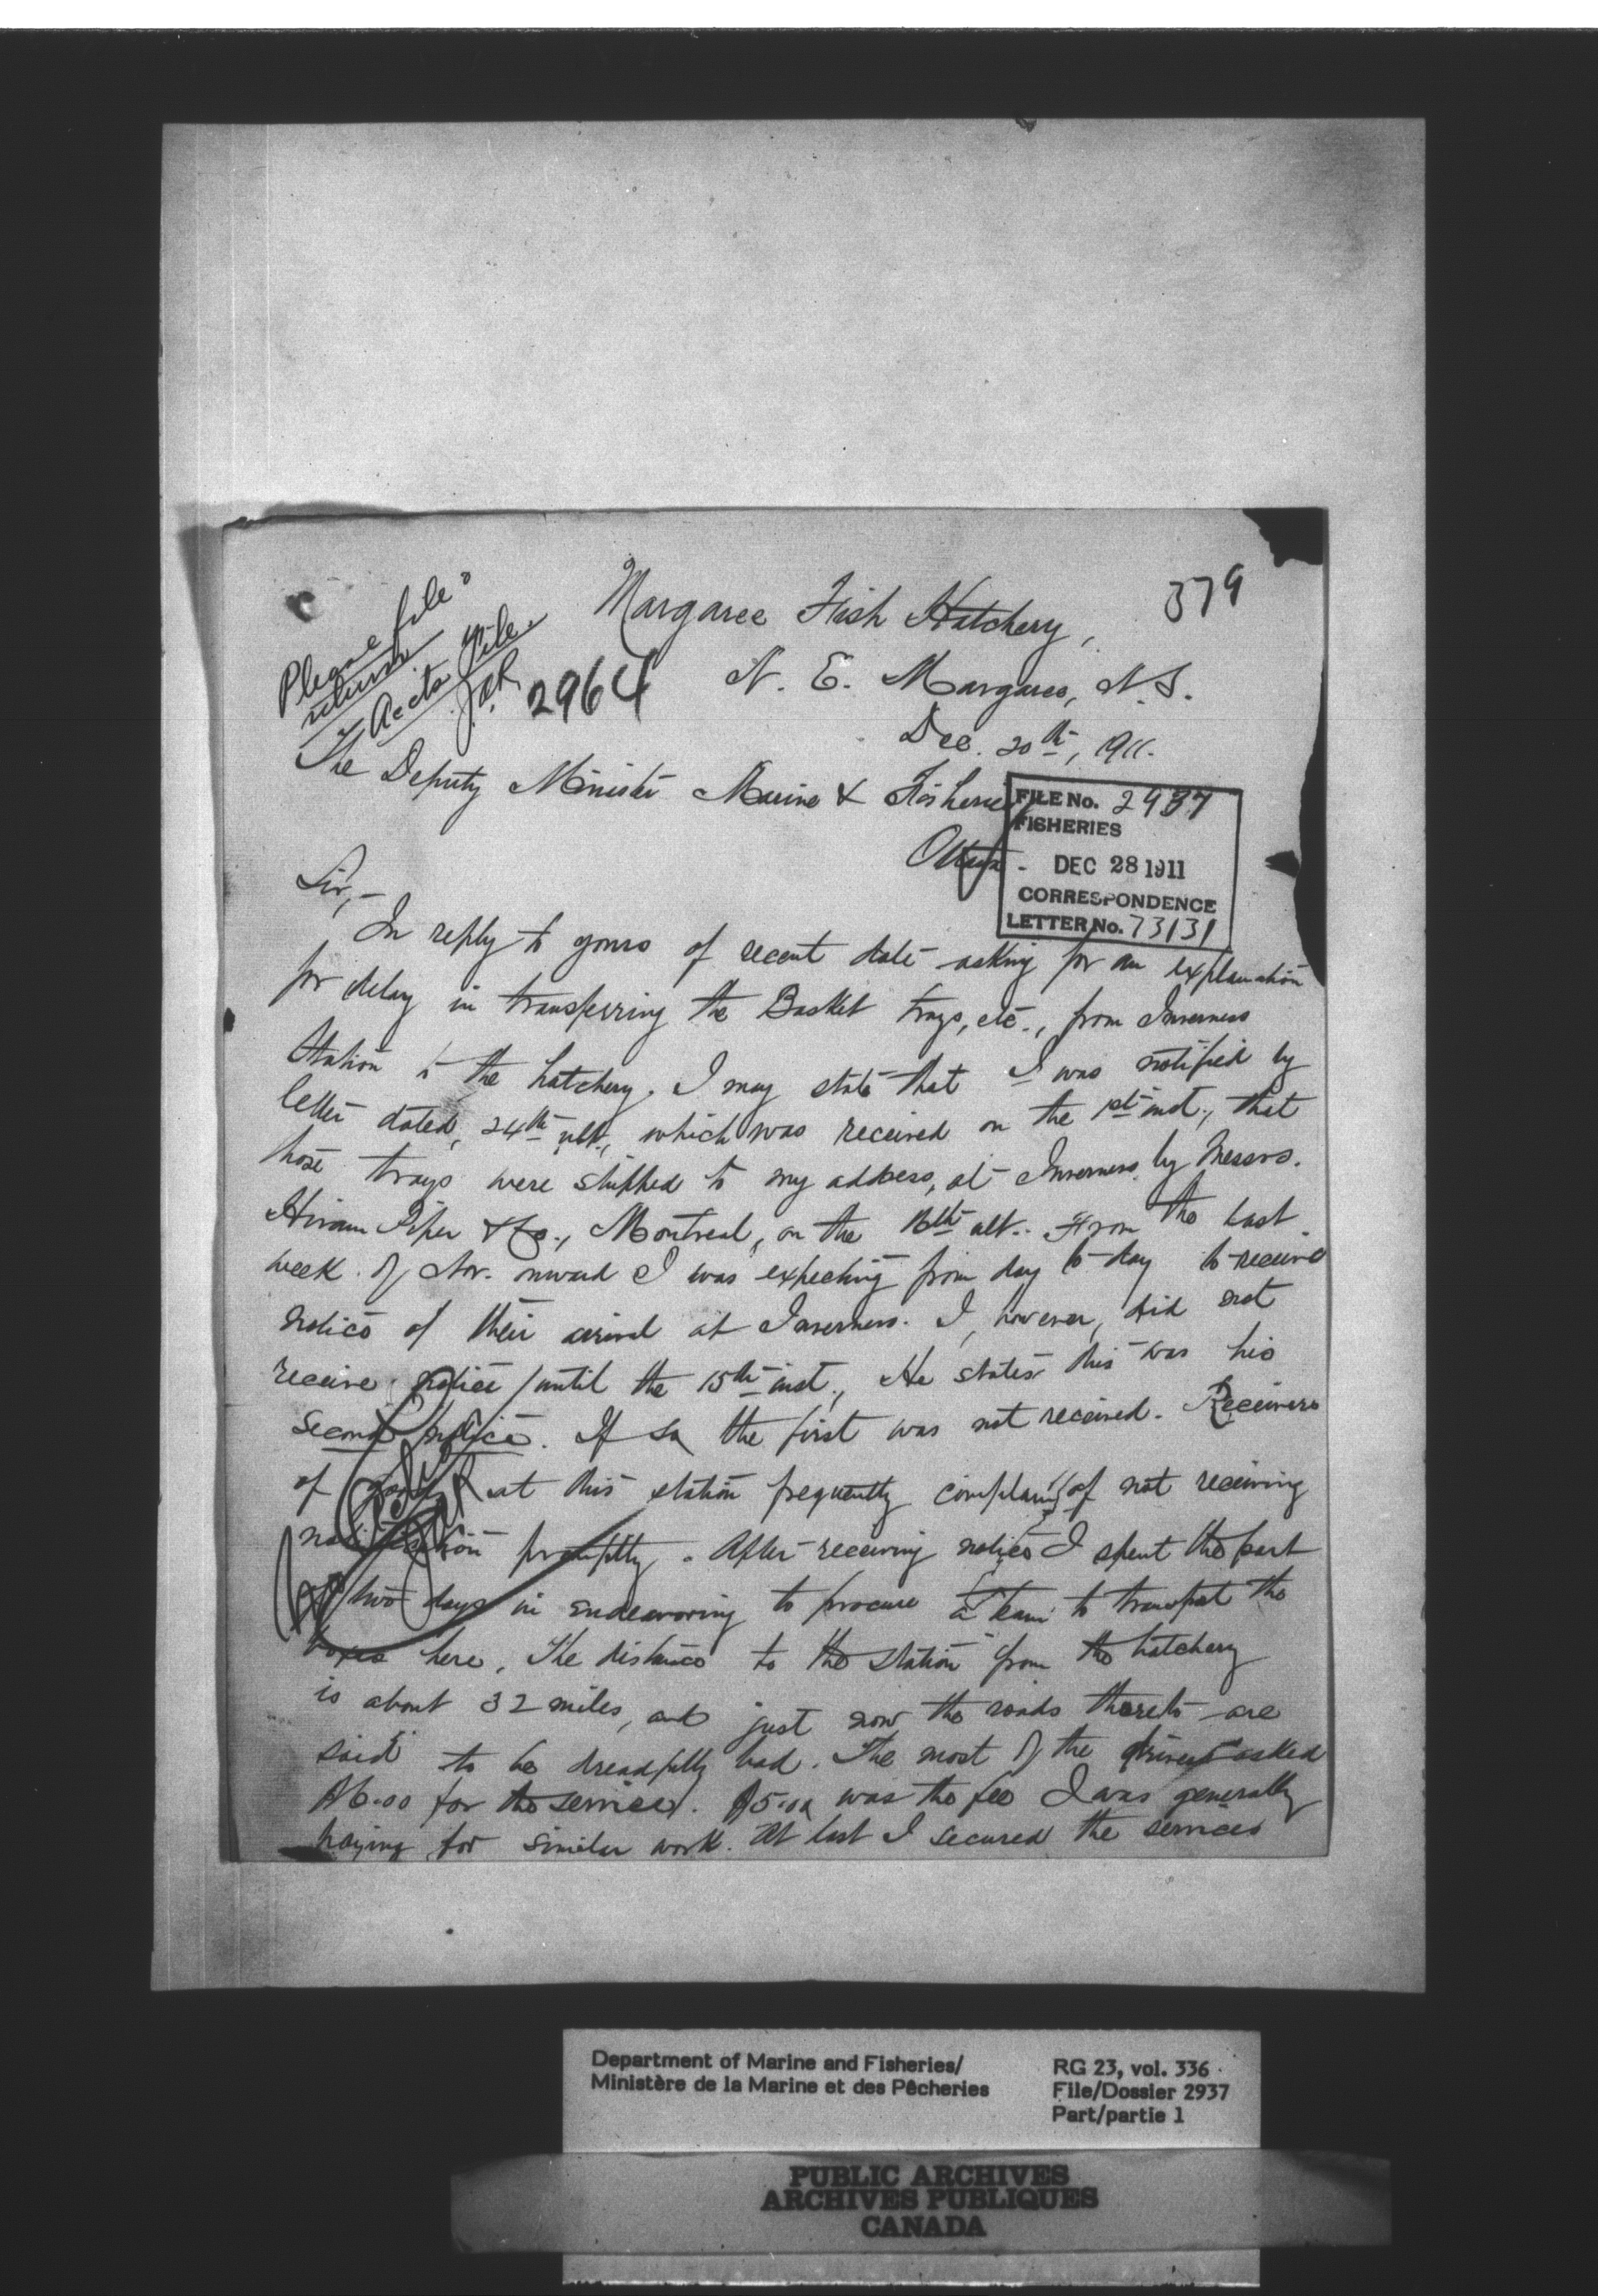 379
Please file &
return
to Accts file.
J.A.R.
2964
Margaree Fish Hatchery,
N. E. Margaree, N.S.
Dec. 20th, 1911.
The Deputy Minister Marine & Fisheries
Ottawa.
FILE No. 2937
FISHERIES
DEC 28 1911
CORRESPONDENCE
LETTER No. 73131
Sir,-
In reply to yours of recent date asking for an explanation
for delay in transferring the Basket trays, etc., from Inverness
Station to the hatchery. I may state that I was notified by
letter dated, 24th ult., which was received on the 1st inst., that
those trays were shipped to my address, at Inverness by Messrs.
Hiram Piper & Co., Montreal, on the 16th ult.. From the last
week of Nov. onward I was expecting from day to day to receive
notice of their arrival at Inverness. I, however, did not
receive notice until the 15th inst., He states this was his
second notice. If so the first was not received. Receivers
of goods at this station frequently complain of not receiving
notification promptly. After receiving notice I spent the part
of two days in endeavoring to procure a team to transport the
boxes here. The distance to the station from the hatchery
is about 32 miles, and just now the roads thereto are
said to be dreadfully bad. The most of the drivers asked
$6.00 for the service. $5.00 was the fee I was generally
paying for similar work. At last I secured the services
Department of Marine and Fisheries/
Ministère de la Marine et des Pêcheries
RG 23, vol. 336
File/Dossier 2937
Part/partie 1
PUBLIC ARCHIVES
ARCHIVES PUBLIQUES
CANADA